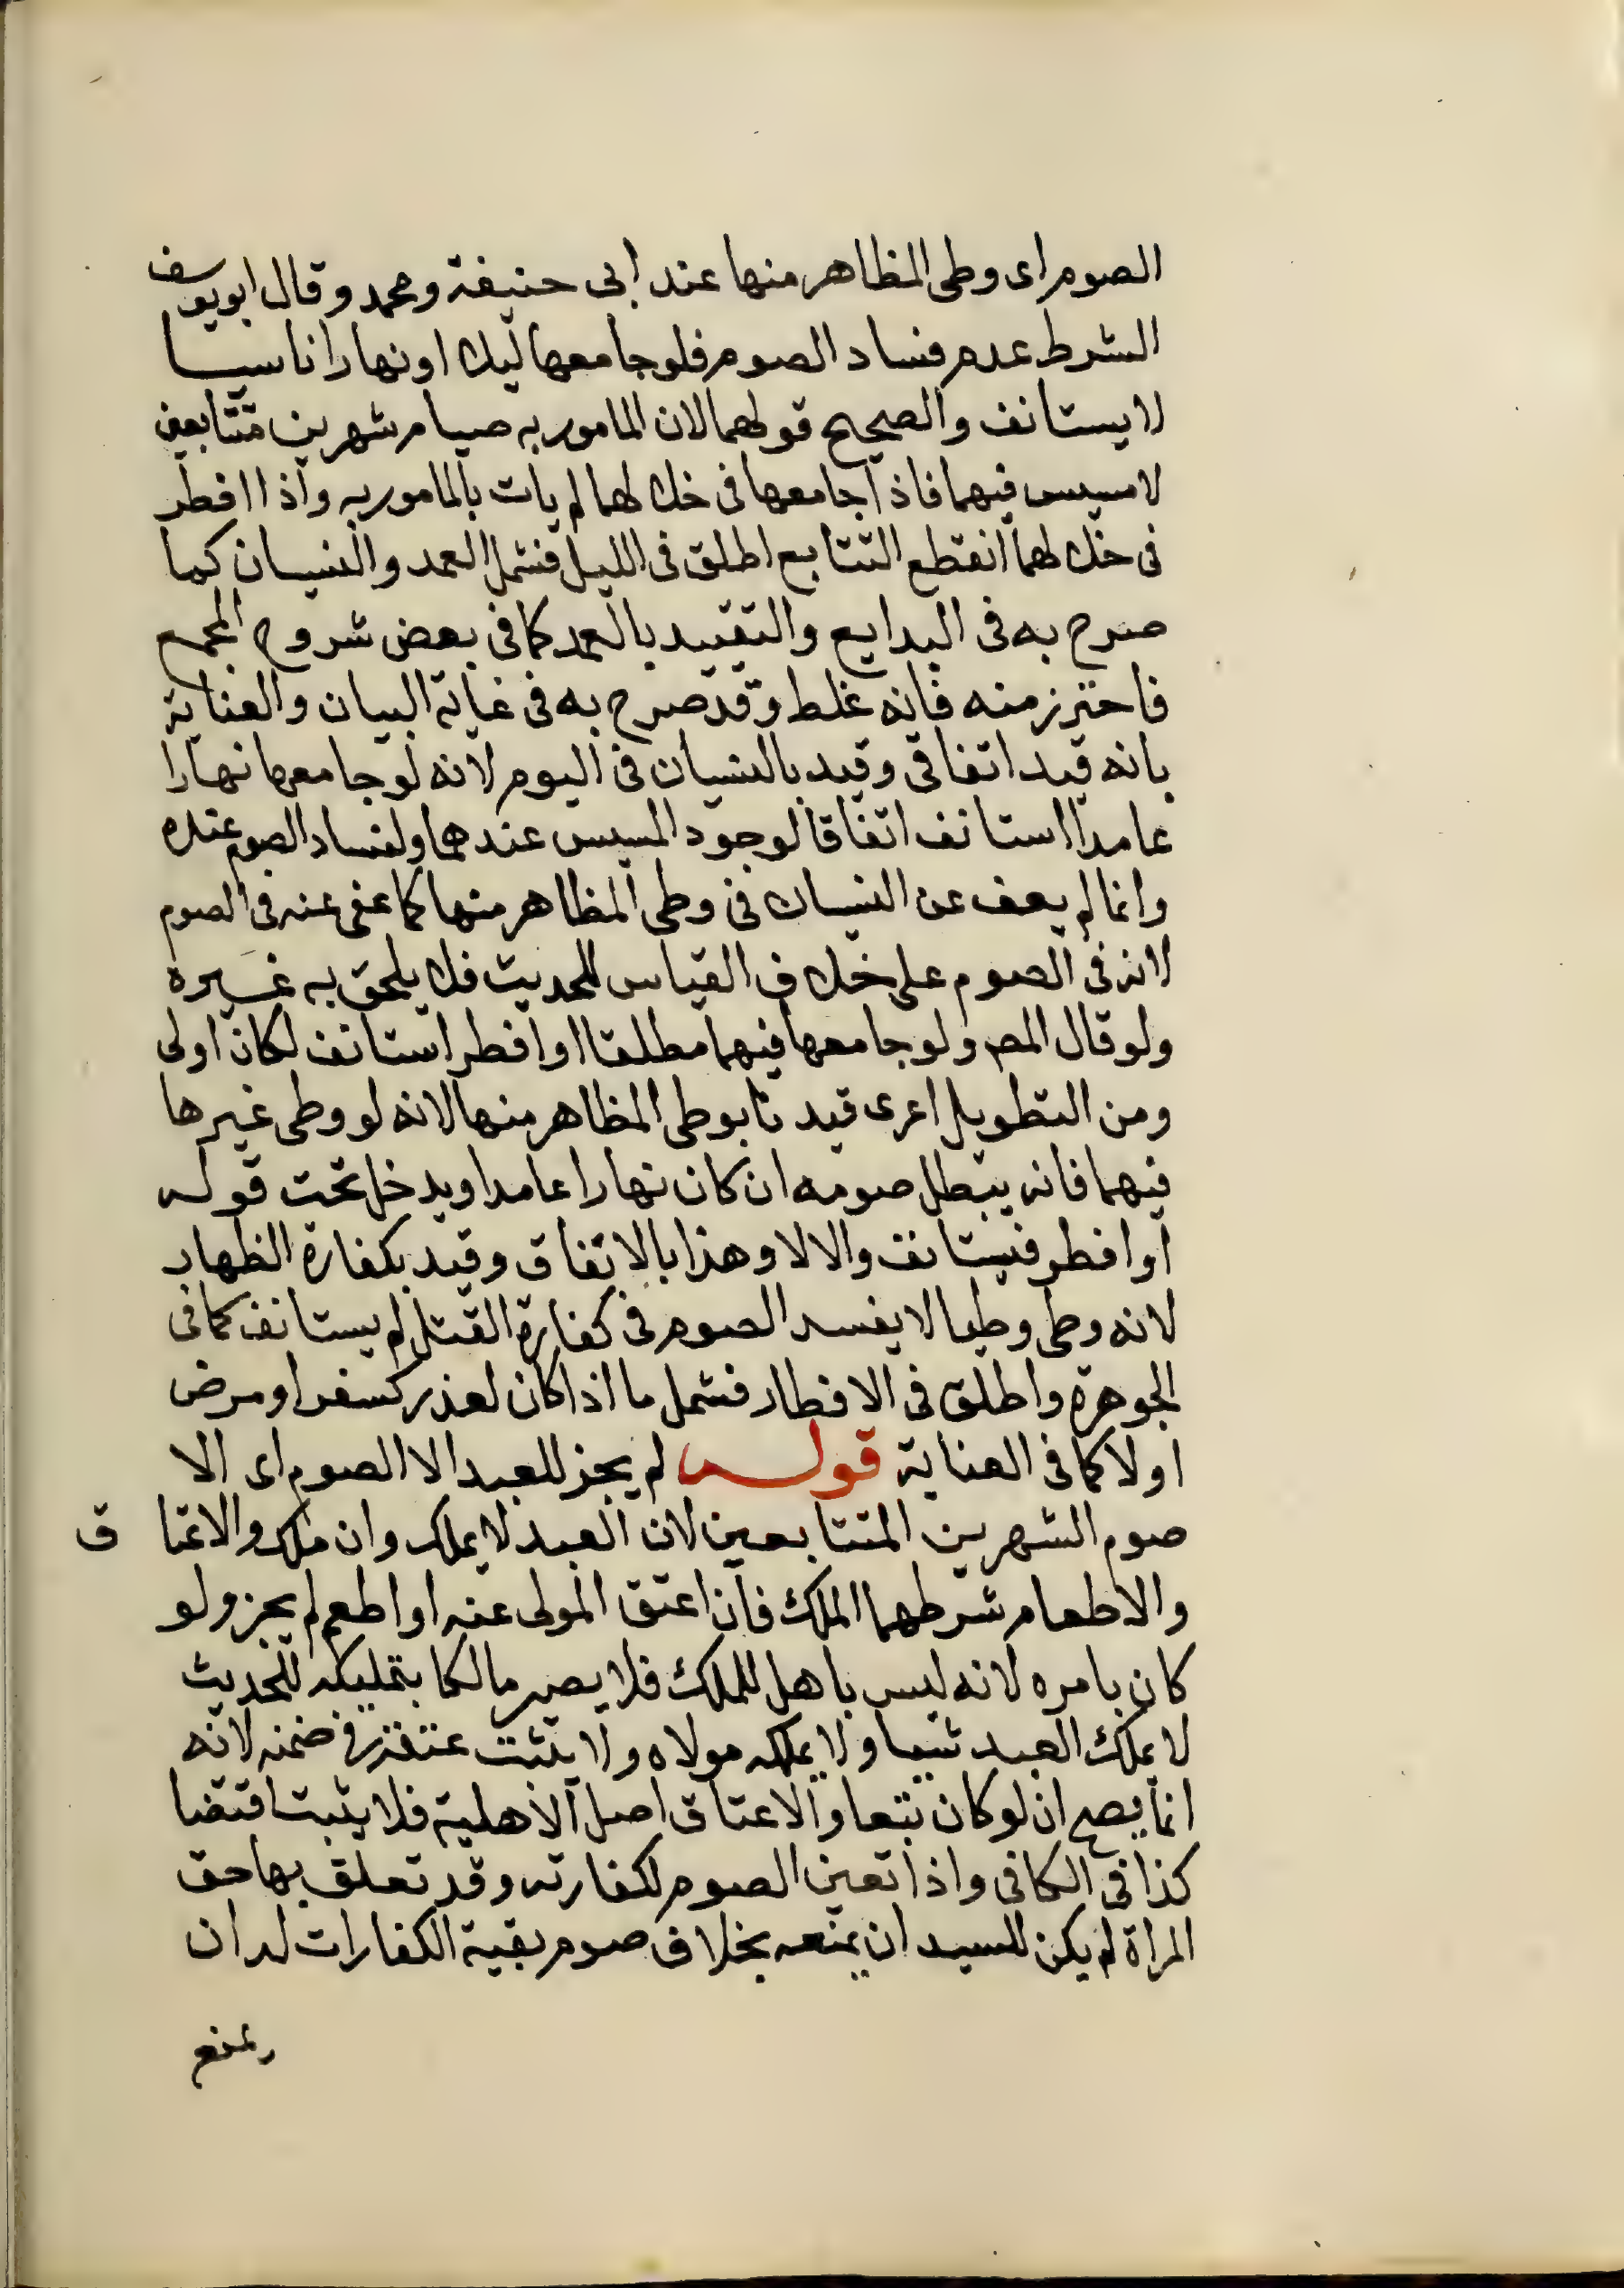 الصوم اى وطى المظاهر منها عند ابى حنيفة ومحمد وقال ابو يوسف
الشرط عدم فساد الصوم فلو جامعها ليلا او نهارا ناسيا
لا يستانف والصحيح قولهما لان المامور به صيام شهرين متتابعين
لا مسيس فيهما فاذا جامعها فى خلالهما لم يات بالمامور به واذا افطر
فى خلالهما انقطع التتابع اطلق فى الليل فشمل العمد والنسيان كما
صرح به فى البدايع والتقييد بالعمد كما فى بعض شروح المجمع
فاحترز منه فانه غلط وقد صرح به فى غاية البيان والعناية
بانه قيد اتفاقى وقيد بالنسيان فى اليوم لانه لو جامعها نهارا
عامدا استانف اتفاقا لوجود المسيس عندهما ولفساد الصوم عنده
وانما لم يعف عن النسيان فى وطى المظاهر منها كما عفى عنه فى الصوم
لانه فى الصوم على خلاف القياس للحديث فلا يلحق به غيره
ولو قال المصـ ولو جامعها فيهما مطلقا او افطر استانف لكان اولى
ومن التطويل اعرى قيدنا بوطى المظاهر منها لانه لو وطى غيرها
فيهما فانه يبطل صومه ان كان نهارا عامدا ويدخل تحت قوله
او افطر فيستانف والا لا وهذا بالاتفاق وقيد بكفارة الظهار
لانه وطى وطيا لا يفسد الصوم فى كفارة القتل لم يستانف كما فى
الجوهرة واطلق فى الافطار فشمل ما اذا كان لعذر كسفر او مرض
اولا كما فى العناية قوله لم يجز للعبد الا الصوم اى الا
صوم الشهرين المتتابعين لان العبد لا يملك وان ملك والاعتاق
والاطعام شرطهما الملك فان اعتق المولى عنه او اطعم لم يجز ولو
كان بامره لانه ليس باهل للملك فلا يصير مالكا بتمليكه للحديث
لا يملك العبد شيا ولا يملكه مولاه ولا يثبت عتقه فى ضمنه لانه
انما يصح ان لو كان تبعا والاعتاق اصل الاهلية فلا يثبت اقتضا
كذا فى الكافى واذا تعين الصوم لكفارته وقد تعلق بها حق
المراة لم يكن للسيد ان يمنعه بخلاف صوم بقية الكفارات له ان
يمنع